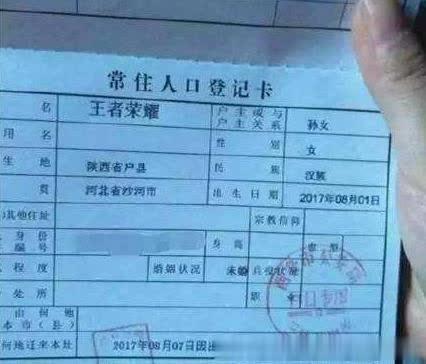 常住人口登记卡
名 王者荣耀 户主或与户主关系 孙女
用名 性别 女
生地 陕西省户县 民族 汉族
贯 河北省沙河市 出生日期 2017年08月01日
其他住址 宗教信仰
身份编号 身高 血型
程度 婚姻状况 未婚 兵役状况
处所 职业
由何地
本市(县)
何地迁来本址 2017年08月07日因出